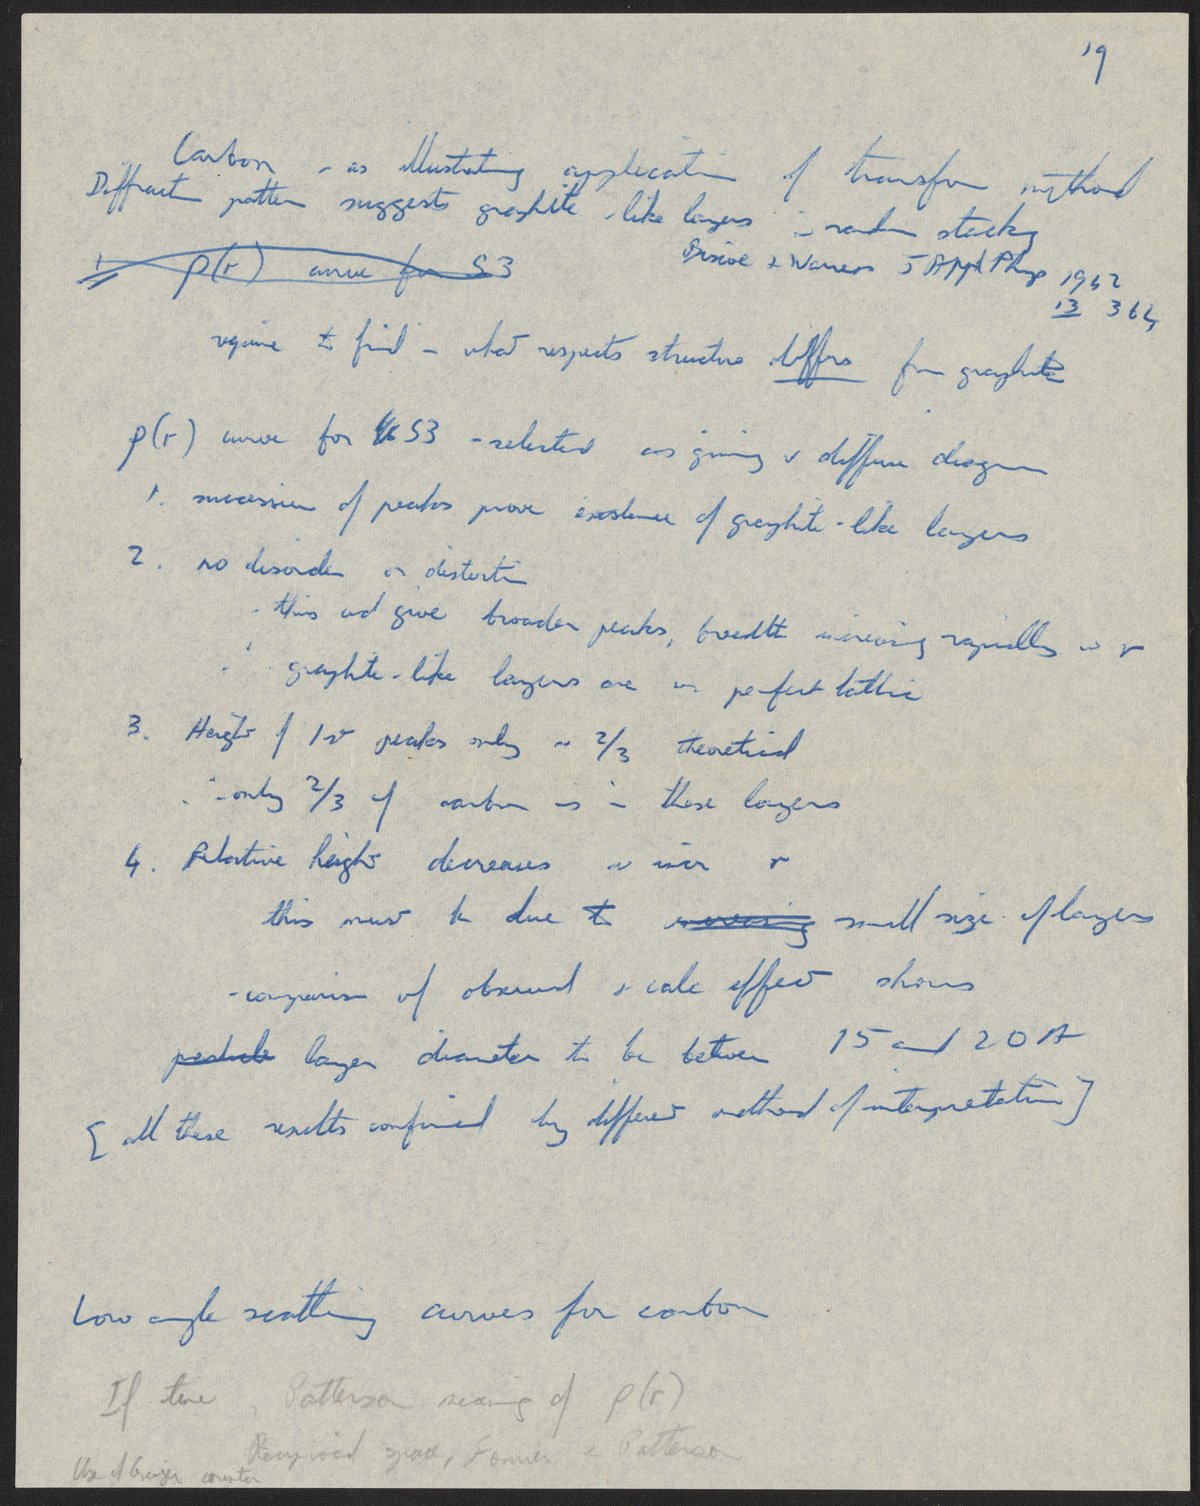 19
Carbon – as illustrating application of transform method
Diffraction pattern suggests graphite-like layers in random stacking
1 ρ(r) curve for S3
Biscoe & Warren J Appl Phys 1942
13 364
require to find in what respects structure differs from graphite
ρ(r) curve for S3 - selected as giving v diffuse diagram
1. succession of peaks prove existence of graphite-like layers
2. no disorder or distortion
- this wd give broader peaks, breadth increasing rapidly w r
∴ graphite-like layers are in perfect lattice
3. Height of 1st peaks only ~ 2/3 theoretical
∴ only 2/3 of carbon is in these layers
4. Relative height decreases w incr r
this must be due to small size of layers
- comparison of observed & calc effect shows
particle layer diameter to be between 15 and 20 A
[all these results confirmed by different method of interpretation]
Low angle scattering curves for carbon
If time, Patterson meaning of ρ(r)
Reciprocal space, Fourier & Patterson
Use of Geiger counter